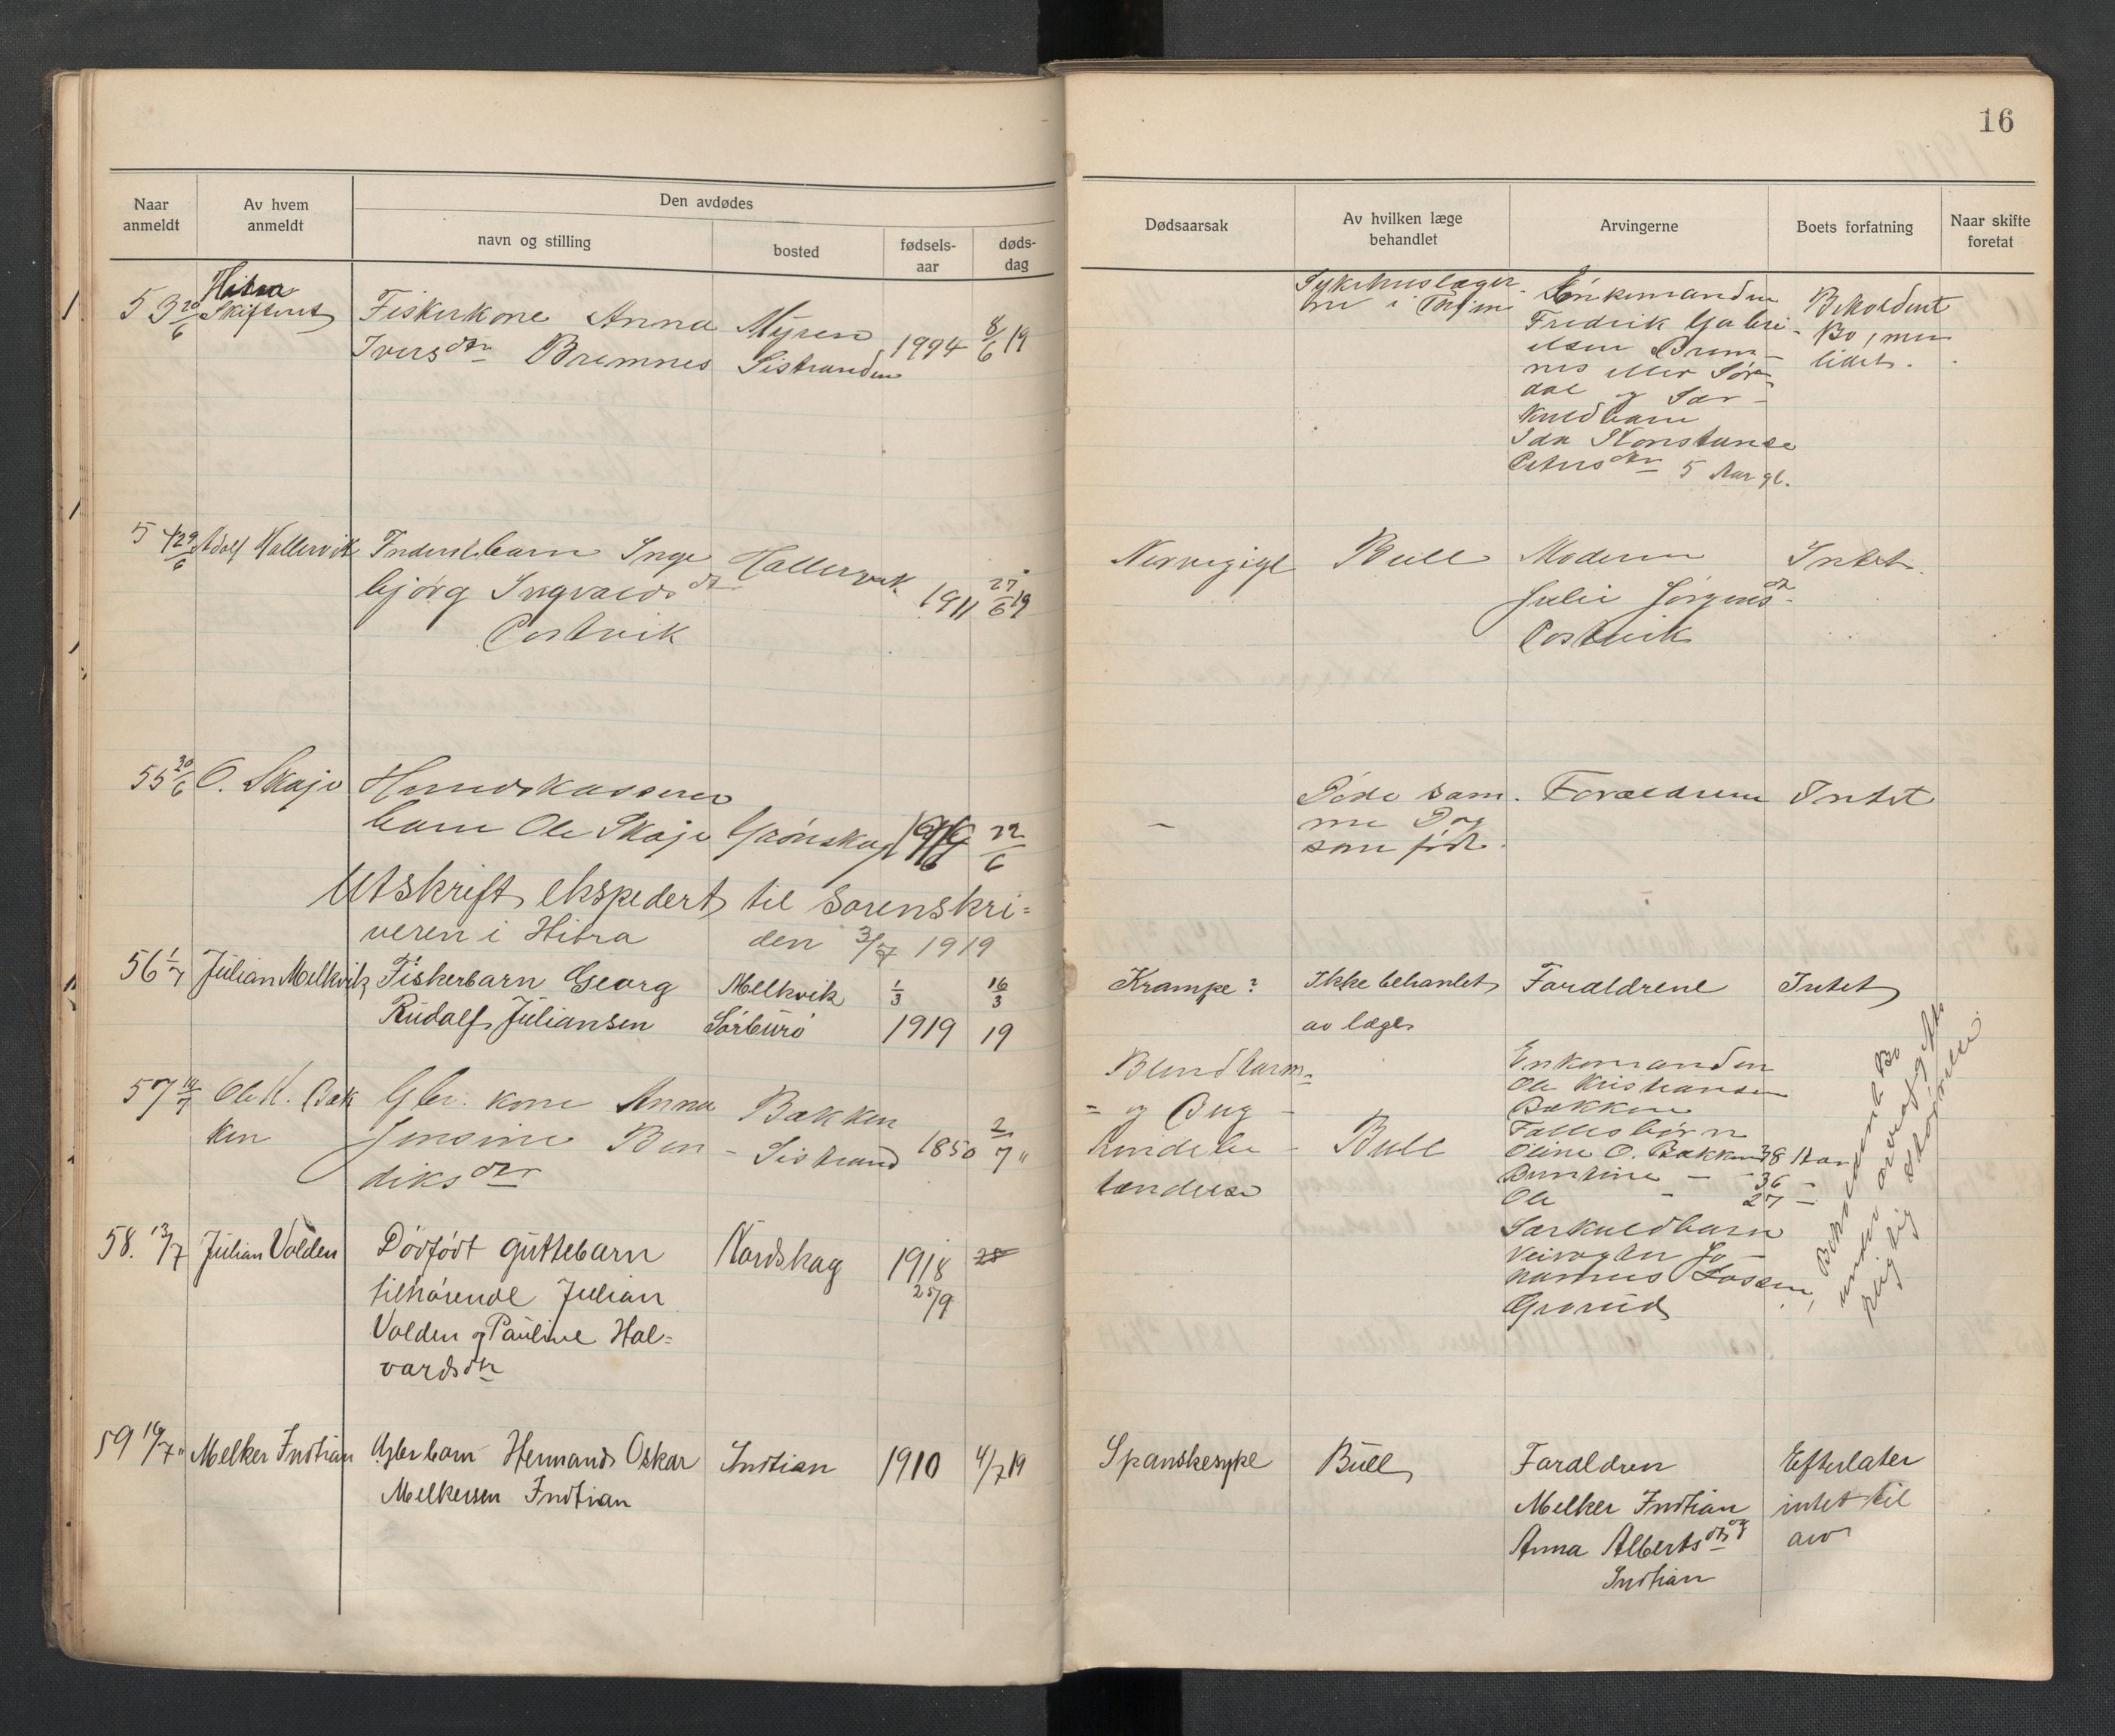 16
Naar anmeldt
Av hvem anmeldt
Den avdødes
navn og stilling
bosted
fødsels-aar
døds-dag
Dødsaarsak
Av hvilken læge behandlet
Arvingerne
Boets forfatning
Naar skifte foretat
53 20/6
Hitra
Skifteret
Fiskerkone Anna
Iversdtr Bremnes
Myren
Sistranden
1994
8/6 19
Sykehuslæger
ne i
Enkemanden
Fredrik Gabri-
elsen Brem-
nes eller Sør-
dal og Sær-
kuldbarn
Ida Konstanse
Petersdtr 5 Aar gl.
Beholdent
Bo, men
lidet.
54 29/6
Adolf Hallervik
Inderstbarn Inge
bjørg Ingvaldsdtr
Postvik
Hallervik
1911
27/6 19
Bull
Moderen
Julie Jørgensdtr
Postvik
Intet.
55 30/6
O. Skaje
barn Ole Skaje
Grønskag
1919
22/6
-
Døde sam-
me Dag
som født.
Forældrene
Intet
Utskrift ekspedert til sorenskri=
veren i Hitra den 3/7 1919
56 1/7
Julian Melkvik
Fiskerbarn Georg
Rudolf Juliansen
Melkvik
Sørburø
1/3
1919
16/3
19
Krampe?
Ikke behandlet
av læge
Forældrene
Intet
57 10/7
Ole K. Bak
ken
Gbr. kone Anna
Jensine Ben-
diksdtr
Bakken
Sistrand
1850
2/7 "
Blindtarm-
= og Bug-
hindebe-
tændelse
Bull
Enkemanden
Ole Kristiansen
Bakken
Fællesbørn
Oline O. Bakken 38 Aar
Berntine - 36 -
Ole - 27 -
Særkuldbarn
Veivogter Jo-
hannes Lossen,
Grorud
Beholdent Bo
under arveafgifts
pligtig størrelse.
58. 13/7
Julian Volden
Dødfødt guttebarn
tilhørende Julian
Volden og Pauline Hal=
vardsdtr
Nordskag
1918
25/9
28
59 16/7 "
Melker Indtian
Gbr barn Hermand Oskar
Melkersen Indtian
Indtian
1910
4/7 19
Spanskesyke
Bull
Foraldren
Melker Indtian
og
Anna Albertsdtr
Indtian
Efterlater
intet til
arv